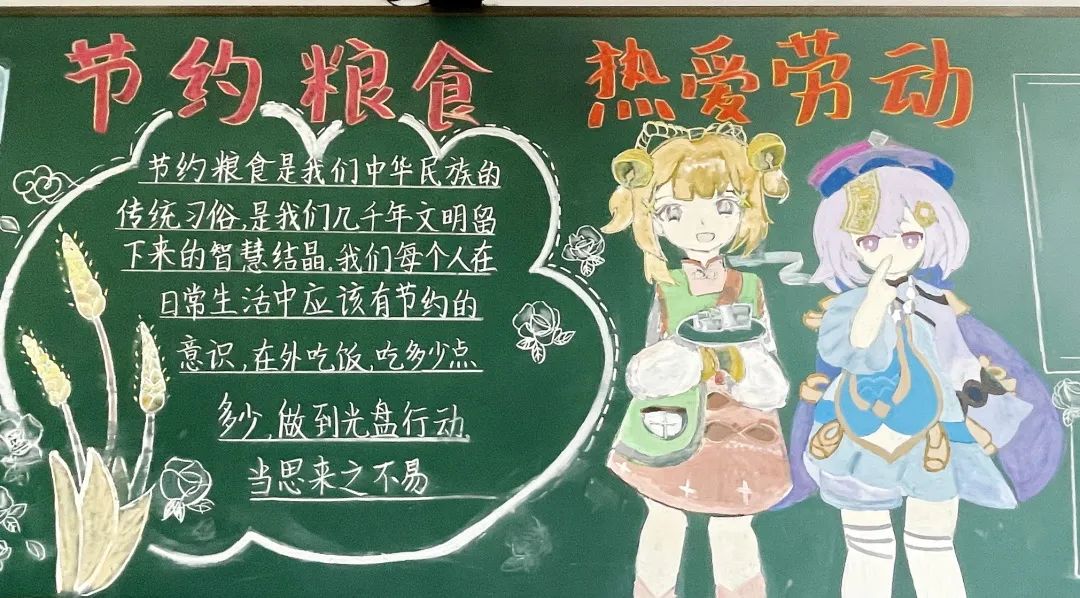 节约粮食 热爱劳动
节约粮食是我们中华民族的
传统习俗,是我们几千年文明留
下来的智慧结晶.我们每个人在
日常生活中应该有节约的
意识,在外吃饭,吃多少点
多少,做到光盘行动
当思来之不易